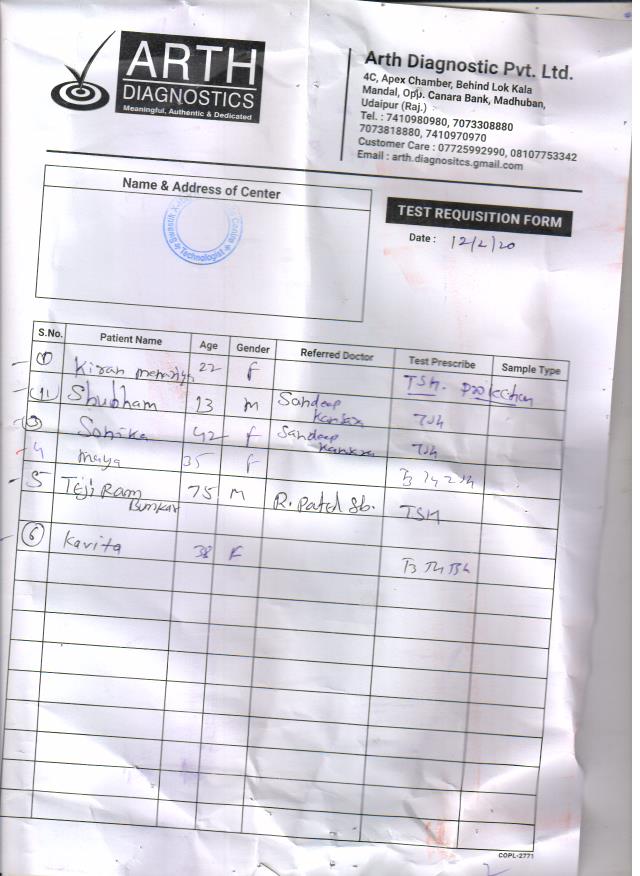 ARTH
DIAGNOSTICS
Meaningful, Authentic & Dedicated
Arth Diagnostic Pvt. Ltd.
4C, Apex Chamber, Behind Lok Kala
Mandal, Opp. Canara Bank, Madhuban,
Udaipur (Raj.)
Tel. : 7410980980, 7073308880
7073818880, 7410970970
Customer Care : 07725992990, 08107753342
Email : arth.diagnositcs.gmail.com
Name & Address of Center
Technologist
TEST REQUISITION FORM
Date : 12/2/20
S.No. Patient Name Age Gender Referred Doctor Test Prescribe Sample Type
1 Kiran 22 F TSH.
Shubham 13 M Sandeep TSH
3 Sonika 42 F Sandeep TSH
4 Maya 35 F T3
5 Teji Ram Bunkar 75 M R. Patel Sb. TSH
6 Kavita 38 F T3
COPL-2771
2